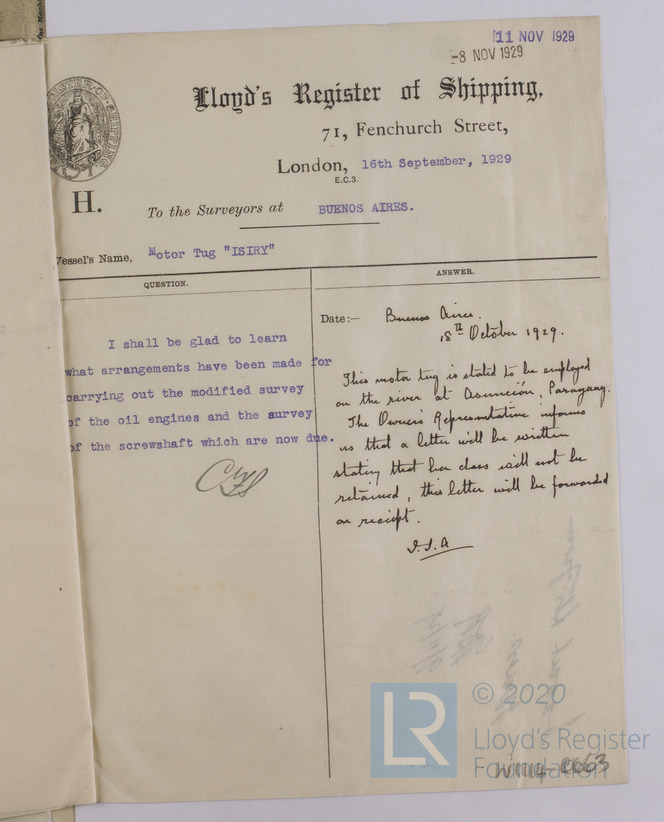 11 NOV 1929
-8 NOV 1929
Lloyd's Register of Shipping,
71, Fenchurch Street,
London, 16th September, 1929
E.C.3.
H. To the Surveyors at BUENOS AIRES.
Vessel's Name, Motor Tug "ISIRY"
QUESTION.
I shall be glad to learn
what arrangements have been made for
carrying out the modified survey
of the oil engines and the survey
of the screwshaft which are now due.
ANSWER.
Date:— Buenos Aires.
18th October 1929.
This motor tug is stated to be employed
on the river at Asunción, Paraguay.
The Owner's Representative informs
us that a letter will be written
stating that her class will not be
retained, this letter will be forwarded
on reciept.
LR
© 2020
Lloyd's Register
Foundation